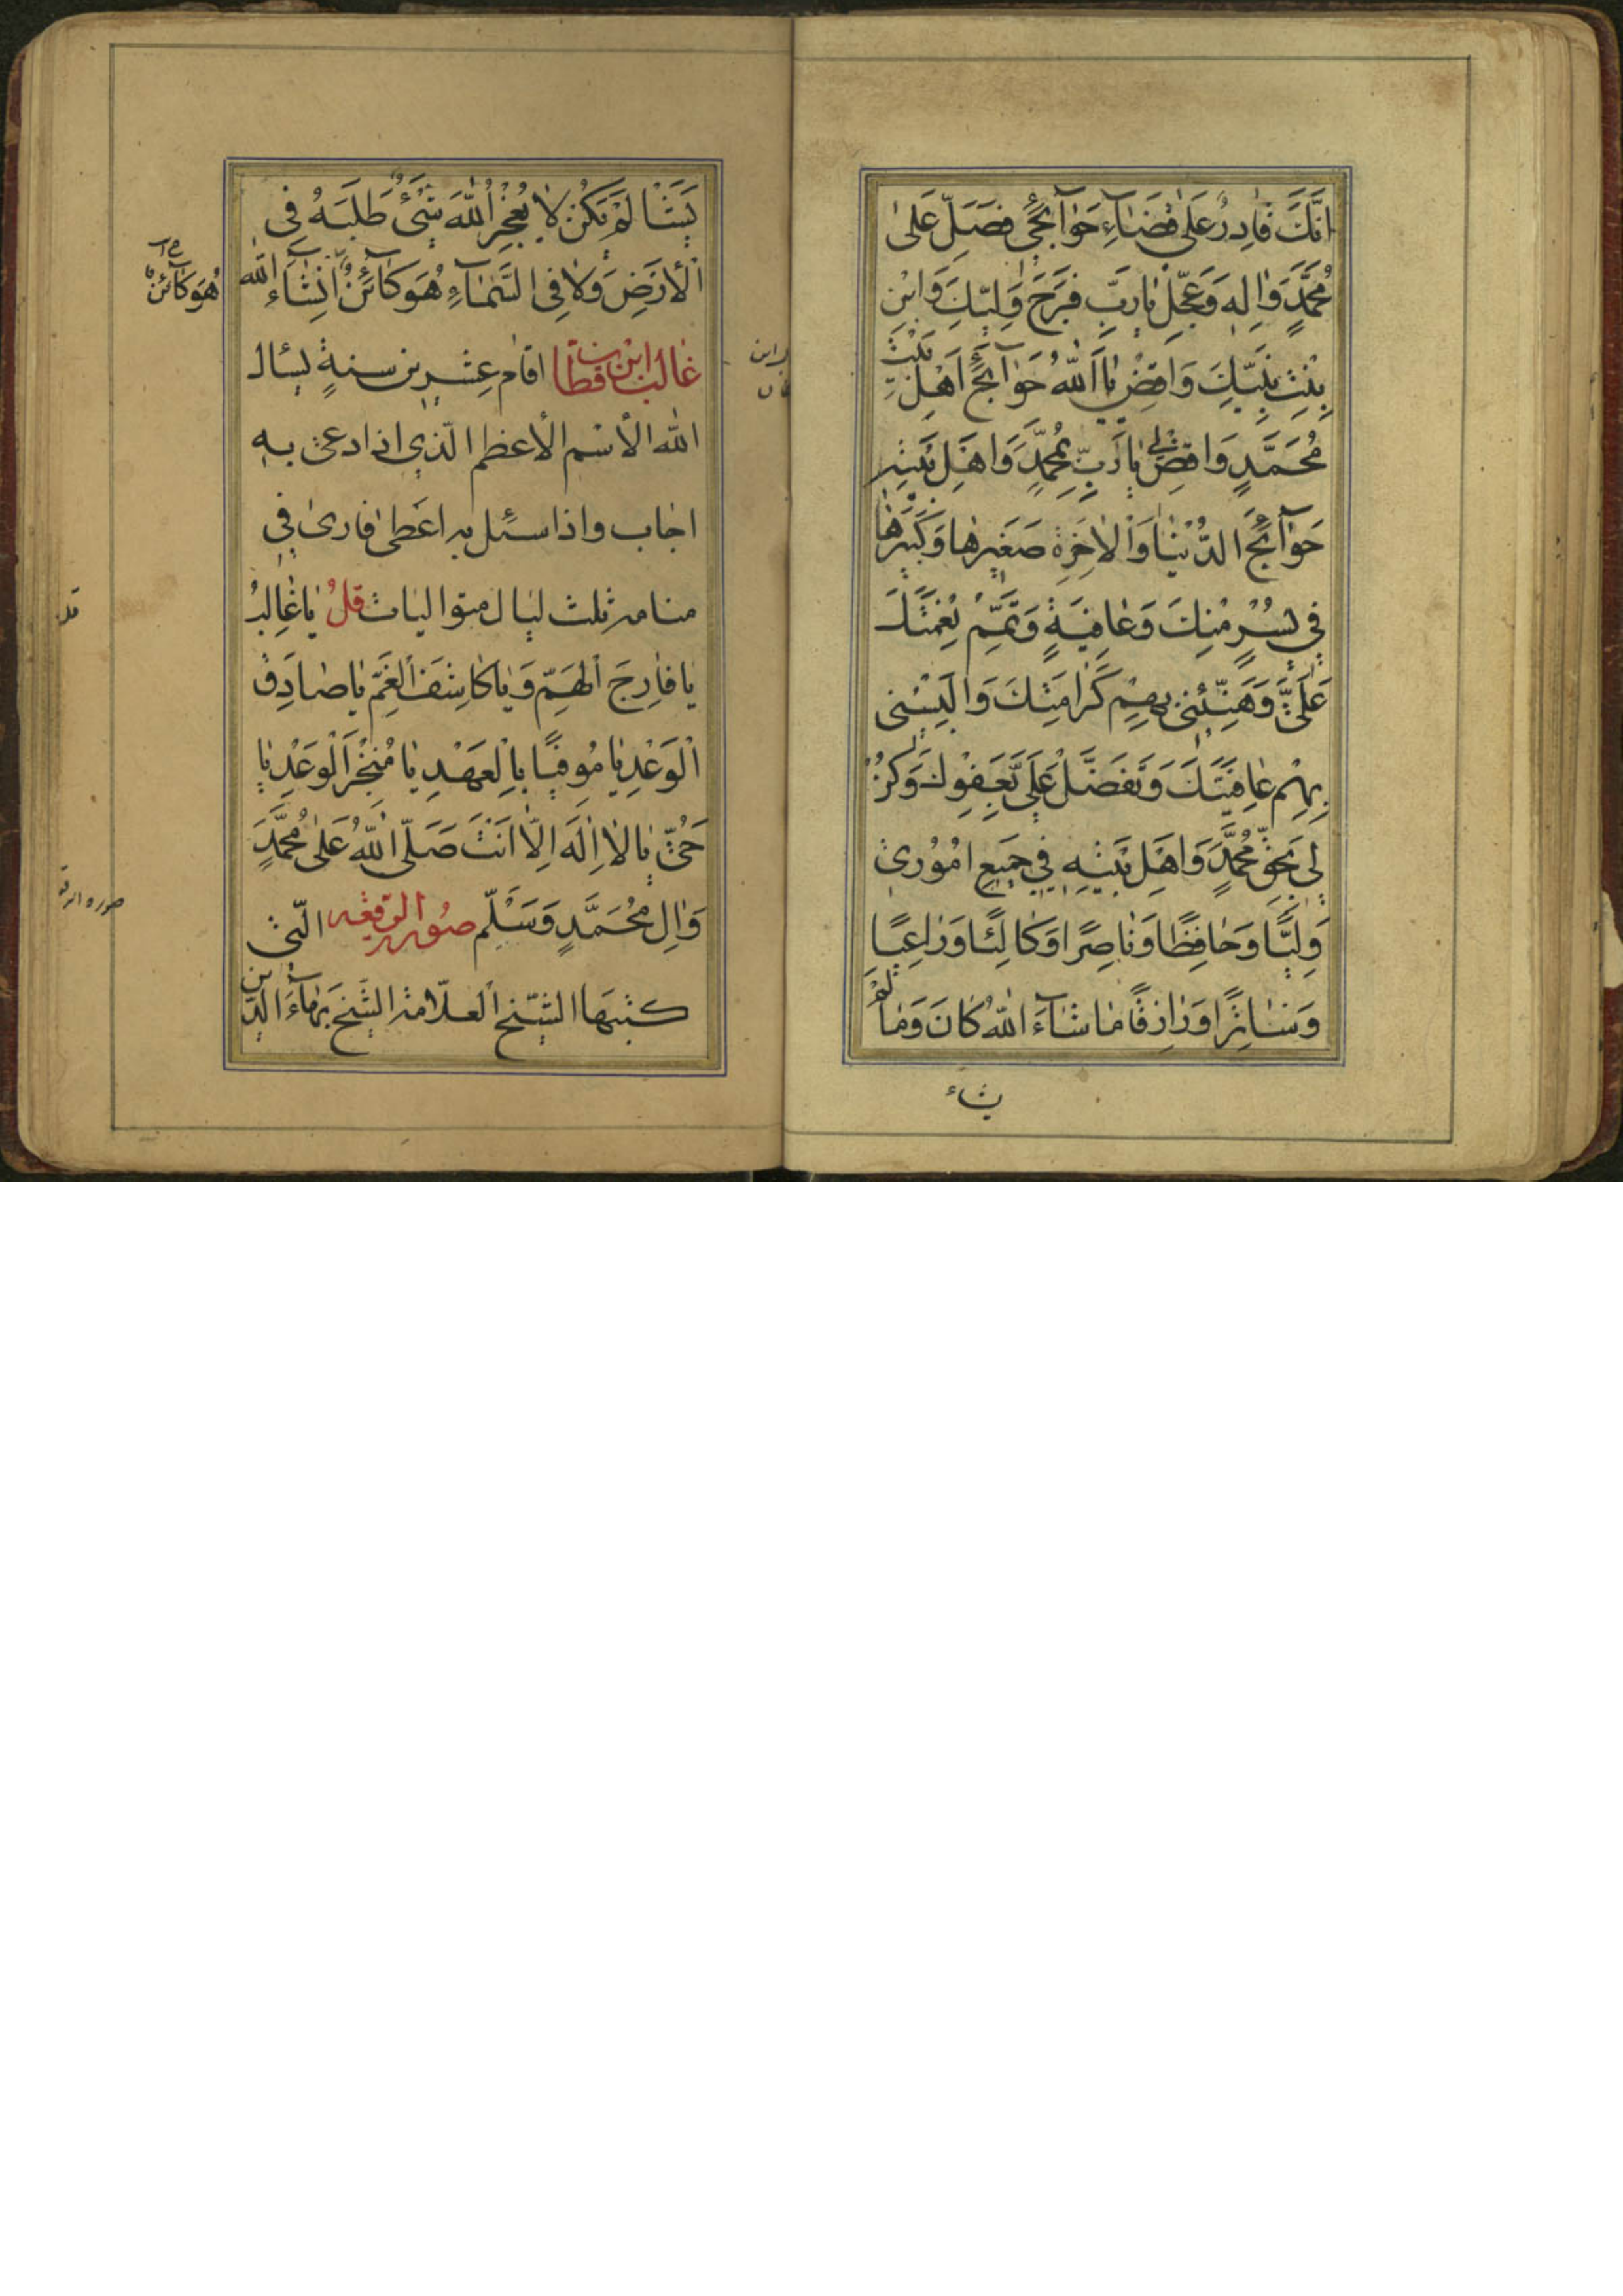 اِنَّكَ قٰادِرٌ عَلىٰ قَضٰاۤءِ حَوٰاۤئِجى فَصَلِّ عَلىٰ
مُحَمَّدٍ وَاٰلِهِ وَعَجِّلْ يٰا رَبِّ فَرَجَ وَلِيِّكَ وَابْنِ
بِنْتِ نَبِيِّكَ وَاقْضِ يٰا اَللّٰهُ حَوٰاۤئِجَ اَهْلِ بَيْتِ
مُحَمَّدٍ وَاقْضِ لي يٰا رَبِّ بِمُحَمَّدٍ وَاهْلِ بَيْتِهِ
حَوٰاۤئِجَ الدُّنْيٰا وَالْاٰخِرَةِ صَغيرِهٰا وَكَبيرِهٰا
في يُسْرٍ مِنْكَ وَعٰافِيَةٍ وَتَمِّمْ نِعْمَتَكَ
عَلَىَّ وَهَنِّئْنى بِهِمْ كَرٰامَتِكَ وَاَلْبِسْنى
بِهِمْ عٰافِيَتَكَ وَتَفَضَّلْ عَلَىَّ بِعَفْوِكَ وَكُنْ
لى بِحَقِّ مُحَمَّدٍ وَاهْلِ بَيْتِهِ في جَميعِ امُوُرى
وَلِيًّا وَحٰافِظًا وَنٰاصِرًا وَكٰالِئًا وَرٰاعِيًا
وَسٰاتِرًا وَرٰازِقًا مٰا شٰاۤءَ اللّٰهُ كٰانَ وَمٰا لَمْ
يشاء
يَشَأْ لَمْ يَكُنْ لاٰ يُعْجِزُ اللّٰهَ شَىْءٌ طَلَبَهُ فِى
الْاَرْضِ وَلاٰ فِى السَّمٰاۤءِ هُوَ كٰاۤئِنٌ اِنْشٰاۤءَ اللّٰه
هُوَ كاۤئنٌ
غالب ابن قطان اقام عشرين سنةٍ يسئال
اللّٰه الأسْم الأعظم الّذي اذا دعى به
اجاب واذا سئل به اعطى فارىٰ في
منامه ثلث ليال متواليات قُلْ يٰا غٰالِبُ
يا فٰارِجَ الْهَمِّ وَيٰا كٰاشِفَ الْغَمِّ يٰا صٰادِقَ
الْوَعْدِ يٰا مُوفِيًا بِالْعَهْدِ يٰا مُنْجِزَ الْوَعْدِ يٰا
حَىُّ يٰا لاٰ اِلٰهَ اِلّٰا اَنْتَ صَلَّى اللّٰهُ عَلىٰ مُحَمَّدٍ
وَاٰلِ مُحَمَّدٍ وَسَلِّمْ صُورة الرقعه الّتى
كتبهَا الشّيخ العلّامة الشّيخ بهاۤءَ الدّين
صوره الرقعه